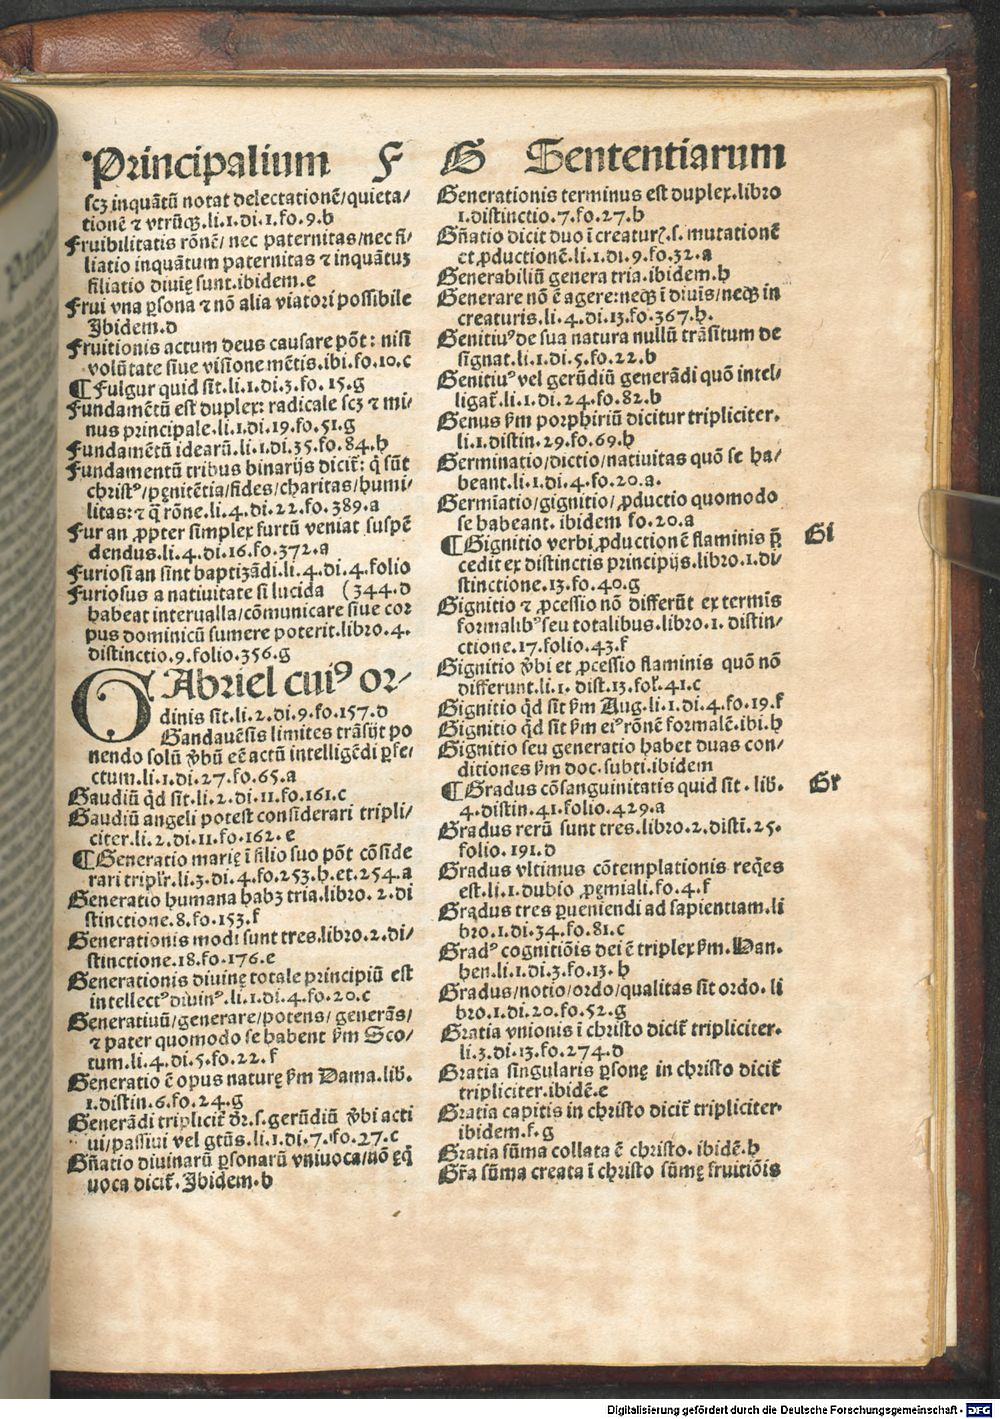 Principalium F
scꝫ inquātū notat delectationē/quieta/
tionē ⁊ vtrūqꝫ.li.1.di.1.fo.9.b
Fruibilitatis rōnē/ nec paternitas/nec fi/
liatio inquātum paternitas ⁊ inquātuꝫ
filiatio diuię sunt.ibidem.e
Frui vna ꝑsona ⁊ nō alia viatori possibile
Ibidem.d
Fruitionis actum deus causare pōt: nisi
volūtate siue visione mētis.ibi.fo.10.c
¶ Fulgur quid sit.li.1.di.3.fo.15.g
Fundamētū est duplex: radicale scꝫ ⁊ mi/
nus principale.li.1.di.19.fo.51.g
Fundamētū idearū.li.1.di.35.fo.84.h
Fundamentū tribus binarijs dicit̄: q̄ sūt
christꝰ/pęnitētia/fides/charitas/humi/
litas: ⁊ q̄ rōne.li.4.di.22.fo.389.a
Fur an ꝓpter simplex furtū veniat suspē
dendus.li.4.di.16.fo.372.a
Furiosi an sint baptizādi.li.4.di.4.folio
Furiosus a natiuitate si lucida (344.d
habeat interualla/cōmunicare siue cor
pus dominicū sumere poterit.libro.4.
distinctio.9.folio.356.g
GAbriel cuiꝰ or/
dinis sit.li.2.di.9.fo.157.d
Gandauēsis limites trāsijt po
nendo solū v̄bū eē actū intelligēdi ꝑfe/
ctum.li.1.di.27.fo.65.a
Gaudiū qd̄ sit.li.2.di.11.fo.161.c
Gaudiū angeli potest considerari tripli/
citer.li.2.di.11.fo.162.e
¶Generatio marię ī filio suo pōt cōside
rari triplr̄.li.3.di.4.fo.253.h.et.254.a
Generatio humana habꝫ tria.libro.2.di
stinctione.8.fo.153.f
Generationis modi sunt tres.libro.2.di/
stinctione.18.fo.176.e
Generationis diuinę totale principiū est
intellectꝰ diuinꝰ.li.1.di.4.fo.20.c
Generatiuū/generare/potens/generās/
⁊ pater quomodo se habent s̄m Sco/
tum.li.4.di.5.fo.22.f
Generatio ē opus naturę s̄m Dama.lib̄.
1.distin.6.fo.24.g
Generādi triplicit̄ dr̄.s.gerūdiū v̄bi acti
ui/passiui vel gtūs.li.1.di.7.fo.27.c
Gn̄atio diuinarū ꝑsonarū vniuoca/nō ęq̄
uoca dicit̄.Ibidem.b
G Sententiarum
Generationis terminus est duplex.libro
1.distinctio.7.fo.27.b
Gn̄atio dicit duo ī creaturꝭ.s.mutationē
et ꝓductionē.li.1.di.9.fo.32.a
Generabiliū genera tria.ibidem.h
Generare nō ē agere: neqꝫ ī diuīs/neqꝫ in
creaturis.li.4.di.13.fo.367.h.
Genitiuꝰ de sua natura nullū trāsitum de
signat.li.1.di.5.fo.22.b
Genitiuꝰ vel gerūdiū generādi quō intel-
ligat̄.li.1.di.24.fo.82.b
Genus s̄m porphiriū dicitur tripliciter.
li.1.distin.29.fo.69.h
Germinatio/dictio/natiuitas quō se ha/
beant.li.1.di.4.fo.20.a.
Germīatio/gignitio/ꝓductio quomodo
se habeant. ibidem fo.20.a
¶Gignitio verbi ꝓductionē flaminis p̄
cedit ex distinctis principijs.libro.1.di/
stinctione.13.fo.40.g
Gignitio ⁊ ꝓcessio nō differūt ex termīs
formalibꝰ seu totalibus.libro.1. distin/
ctione.17.folio.43.f
Gignitio v̄bi et ꝓcessio flaminis quō nō
differunt.li.1. dist.13.fol̄.41.c
Gignitio qd̄ sit s̄m Aug.li.1.di.4.fo.19.f
Gignitio qd̄ sit s̄m eiꝰ rōnē formalē.ibi.h
Gignitio seu generatio habet duas con/
ditiones s̄m doc.subti.ibidem
¶Gradus cōsanguinitatis quid sit.lib̄.
4.distin.41.folio.429.a
Gradus rerū sunt tres.libro.2.distī.25.
folio.191.d
Gradus vltimus cōtemplationis req̄es
est.li.1.dubio ꝓęmiali.fo.4.f
Gradus tres ꝑueniendi ad sapientiam.li
bro.1.di.34.fo.81.c
Gradꝰ cognitiōis dei ē triplex s̄m.Dan.
hen.li.1.di.3.fo.13.h
Gradus/notio/ordo/qualitas sit ordo.li
bro.1.di.20.fo.52.g
Gratia vnionis ī christo dicit̄ tripliciter.
li.3.di.13.fo.274.d
Gratia singularis ꝑsonę in christo dicit̄
tripliciter.ibidē.e
Gratia capitis in christo dicit̄ tripliciter.
ibidem.f.g
Gratia sūma collata ē christo.ibidē.h
Gr̄a sūma creata ī christo sūmę fruitiōis
Gi
Gr
Digitalisierung gefördert durch die Deutsche Forschungsgemeinschaft - DFG